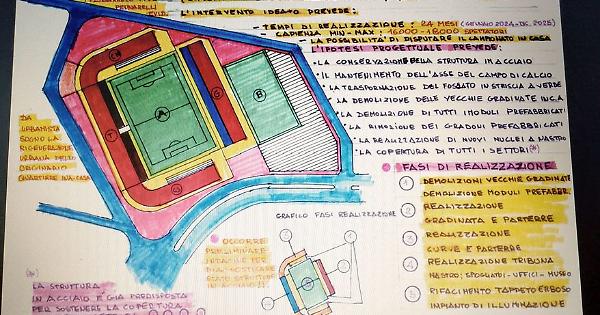 PETNARELLI
L'INTERVENTO IDEATO PREVEDE:
- TEMPI DI REALIZZAZIONE: 24 MESI (GENNAIO 2024-DIC. 2025)
- CAPIENZA MIN-MAX: 16000-18000 SPETTATORI
- LA POSSIBILITÀ DI DISPUTARE IL CAMPIONATO IN CASA
L'IPOTESI PROGETTUALE PREVEDE:
• LA CONSERVAZIONE DELLA STRUTTURA IN ACCIAIO
• IL MANTENIMENTO DELL'ASSE DEL CAMPO DI CALCIO
• LA TRASFORMAZIONE DEL FOSSATO IN STRISCIA A VERDE
• LA DEMOLIZIONE DELLE VECCHIE GRADINATE IN C.A.
• LA DEMOLIZIONE DI TUTTI I MODULI PREFABBRICATI
• LA RIMOZIONE DEI GRADONI PREFABBRICATI
• LA REALIZZAZIONE DI NUOVI NUCLEI A NASTRO
• LA COPERTURA DI TUTTI I SETTORI (*)
DA
URBANISTA
SOGNO LA
RIGENERAZIONE
URBANA DELLO
ORDINARIO
QUARTIERE IN-A-CASA
C
T
A
G
B
C
FASI DI REALIZZAZIONE
1 DEMOLIZIONI VECCHIE GRADINATE
DEMOLIZIONE MODULI PREFABBR.
2 REALIZZAZIONE
GRADINATA E PARTERRE
3 REALIZZAZIONE
CURVE E PARTERRE
4 REALIZZAZIONE TRIBUNA
NASTRO: SPOGLIATOI - UFFICI - MUSEO
5 RIFACIMENTO TAPPETO ERBOSO
IMPIANTO DI ILLUMINAZIONE
GRAFICO FASI REALIZZAZIONE
OCCORRE
PER DIAGNOSTICARE
STATO STRUTTURE
IN ACCIAIO!!
(*)
LA STRUTTURA
IN ACCIAIO È GIÀ PREDISPOSTA
PER SOSTENERE LA COPERTURA